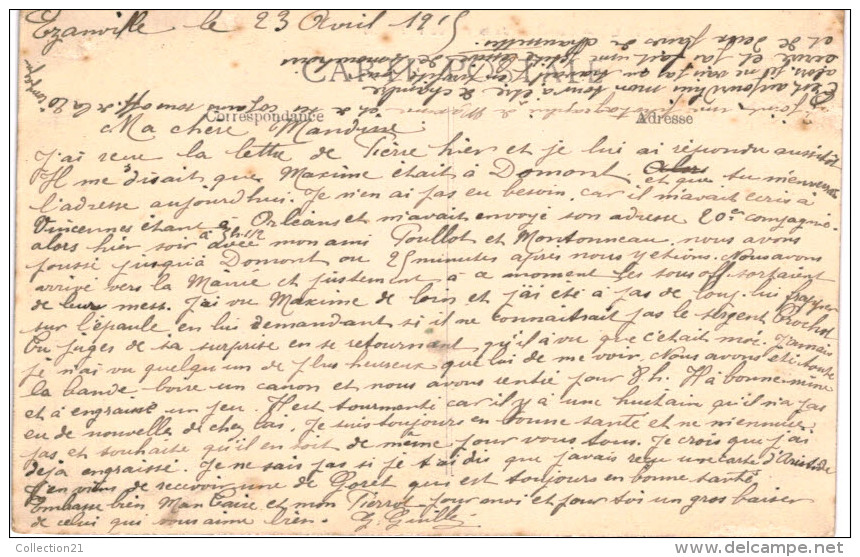 Ezanville le 23 Avril 1915
CARTE POSTALE
Correspondance
Adresse
Ma chère Mandine
J'ai reçu la lettre de Pierre hier et je lui ai répondu aussitôt
Il me disait que Maxime était à Domont et que tu m'enverrais
l'adresse aujourd'hui. Je n'en ai pas eu besoin car il m'avait écrit à
Vincennes étant à Orléans et m'avait envoyé son adresse 20e compagnie.
alors hier soir à 5h1/2 avec mon ami Poullot et Montonneau nous avons
poussé jusqu'à Domont ou 25 minutes après nous y étions. Nous avons
arrivé vers la Mairie et justement à ce moment les sous off sortaient
de leur mess. J'ai vu Maxime de loin et j'ai été à pas de loup lui frapper
sur l'épaule en lui demandant si il ne connaitrait pas le sergent Brochot
Tu juges de sa surprise en se retournant qu'il à vu que c'était moi. Jamais
je n'ai vu quelqu'un de plus heureux que lui de me voir. Nous avons été toute
la bande boire un canon et nous avons rentré pour 8h. Il à bonne mine
et à engraissé un peu. Il est tourmenté car il y à une huitaine qu'il n'a pas
eu de nouvelles de chez eux. Je suis toujours en bonne santé et ne m'ennuie
pas et souhaite qu'il en soit de même pour vous tous. Je crois que j'ai
déja engraissé. Je ne sais pas si je t'ai dis que j'avais reçu une carte d'Aristide
J'en viens de recevoir une de Poret qui est toujours en bonne santé.
Embrasse bien Man Caire et mon Pierrot pour moi et pour toi un gros baiser
de celui qui vous aime bien. G. Guilly
C'est aujourd'hui mon tour à être de chambre
et de deux jours de
Collection21
© delcampe.net